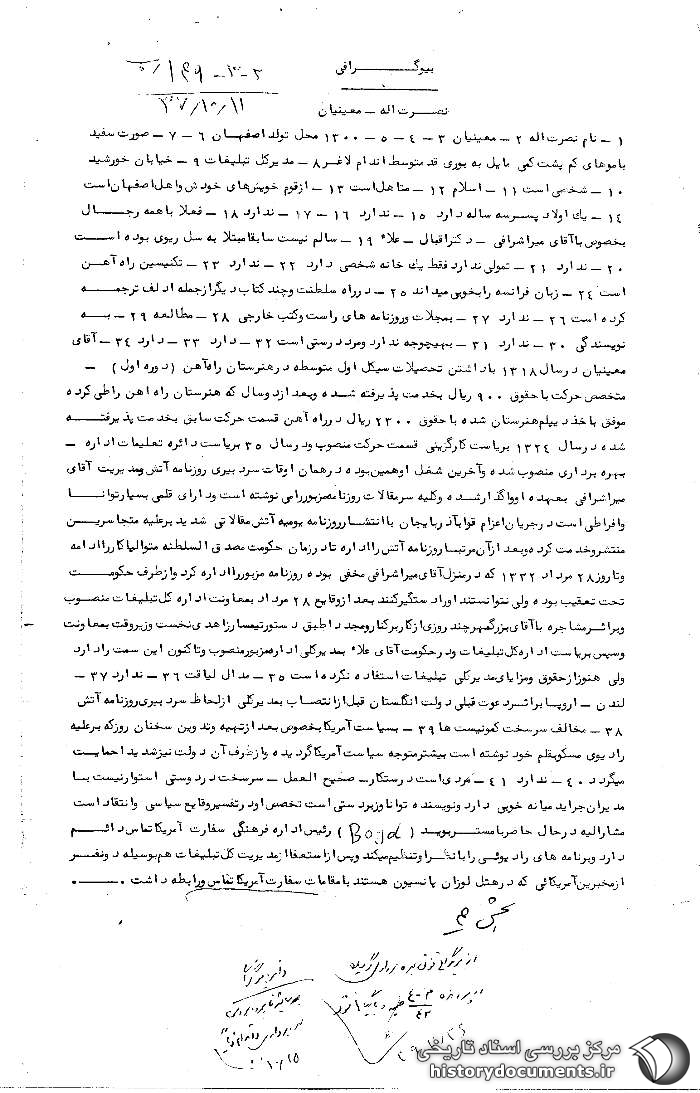 بیوگـــرافی
۳-۲-۱۴۹/ه‍
۳۷/۱۰/۱۱
نصرت اله - معینیان
۱ - نام نصرت اله ۲ - معینیان ۳ - ۴ - ۵ - ۱۳۰۰ محل تولد اصفهان ۶ - ۷ - صورت سفید
با موهای کم پشت کمی مایل به بوری قد متوسط اندام لاغر ۸ - مدیر کل تبلیغات ۹ - خیابان خورشید
۱۰ - شخصی است ۱۱ - اسلام ۱۲ - متاهل است ۱۳ - از قوم خویش های خودش و اهل اصفهان است
۱۴ - یك اولاد پسر سه ساله دارد ۱۵ - ندارد ۱۶ - ۱۷ - ندارد ۱۸ - فعلا با همه رجـــال
بخصوص با آقای میراشرافی - دکتر اقبال - علاء ۱۹ - سالم نیست سابقا مبتلا به سل ریوی بوده است
۲۰ - ندارد ۲۱ - تمولی ندارد فقط یك خانه شخصی دارد ۲۲ - ندارد ۲۳ - تکنیسین راه آهن
است ۲۴ - زبان فرانسه را بخوبی میداند ۲۵ - در راه سلطنت و چند کتاب دیگر از جمله ادلف ترجمـــه
کرده است ۲۶ - ندارد ۲۷ - بمجلات و روزنامه های راست و کتب خارجی ۲۸ - مطالعه ۲۹ - بـــه
نویسندگی ۳۰ - ندارد ۳۱ - بهیچوجه ندارد و مرد درستی است ۳۲ - دارد ۳۳ - دارد ۳۴ - آقای
معینیان در سال ۱۳۱۸ با داشتن تحصیلات سیکل اول متوسطه در هنرستان راه آهن (دوره اول) -
متخصص حرکت با حقوق ۹۰۰ ریال بخدمت پذیرفته شده و بعد از دو سال که هنرستان راه اهن را طی کرده
موفق باخذ دیپلم هنرستان شده با حقوق ۲۳۰۰ ریال در راه آهن قسمت حرکت سابق بخدمت پذیرفتـــه
شده در سال ۱۳۲۴ بریاست کارگزینی قسمت حرکت منصوب و در سال ۳۵ بریاست دائره تعلیمات اداره -
بهره برداری منصوب شده و آخرین شغل او همین بوده در همان اوقات سردبیری روزنامه آتش و مدیریت آقای
میراشرافی بعهده او واگذار شده و کلیه سرمقالات روزنامه مزبور را می نوشته است و دارای قلمی بسیار توانـــا
و افراطی است در جریان اعزام قوا بآذربایجان با انتشار روزنامه یومیه آتش مقالاتی شدید بر علیه متجاسریـــن
منتشر و خدمت کرده و بعد از آن مرتبا روزنامه آتش را اداره تا در زمان حکومت مصدق السلطنه متوالیا کار را ادامه
و تا روز ۲۸ مرداد ۱۳۳۲ که در منزل آقای میراشرافی مخفی بوده روزنامه مزبور را اداره کرد و از طرف حکومـــت
تحت تعقیب بوده ولی نتوانستند او را دستگیر کنند بعد از وقایع ۲۸ مرداد بمعاونت اداره کل تبلیغات منصوب
و بر اثر مشاجره با آقای بزرگمهر چند روزی از کار برکنار و مجددا طبق دستور تیمسار زاهدی نخست وزیر وقت بمعاونت
و سپس بریاست اداره کل تبلیغات و در حکومت آقای علاء بمدیرکلی اداره مزبور منصوب و تا کنون این سمت را دارد
ولی هنوز از حقوق و مزایای مدیر کلی تبلیغات استفاده نکرده است ۳۵ - مدال لیاقت ۳۶ - ندارد ۳۷ -
لندن - اروپا بر اثر دعوت قبلی دولت انگلستان قبل از انتصاب بمدیرکلی از لحاظ سردبیری روزنامه آتش
۳۸ - مخالف سرسخت کمونیست ها ۳۹ - بسیاست آمریکا بخصوص بعد از تهیه و تدوین سخنان روز که بر علیه
رادیوی مسکو بقلم خود نوشته است بیشتر متوجه سیاست آمریکا گردیده و از طرف آن دولت نیز شدیدا حمایت
میگردد ۴۰ - ندارد ۴۱ - مردی است درستکار - صحیح العمل - سرسخت در دوستی استوار نیست بـــا
مدیران جراید میانه خوبی دارد و نویسنده توانا و زبردستی است تخصص او در تفسیر وقایع سیاسی و انتقاد است
مشارالیه در حال حاضر با مستر بوید (Boyd) رئیس اداره فرهنگی سفارت آمریکا تماس دائـــم
دارد و برنامه های رادیوئی را با نظر او تنظیم میکند و پس از استعفا از مدیریت کل تبلیغات هم بوسیله دو نفر
از مخبرین آمریکائی که در هتل لوزان پانسیون هستند با مقامات سفارت آمریکا تماس و رابطه داشت .
بخش ۳
مرکز بررسی اسناد تاریخی
historydocuments.ir